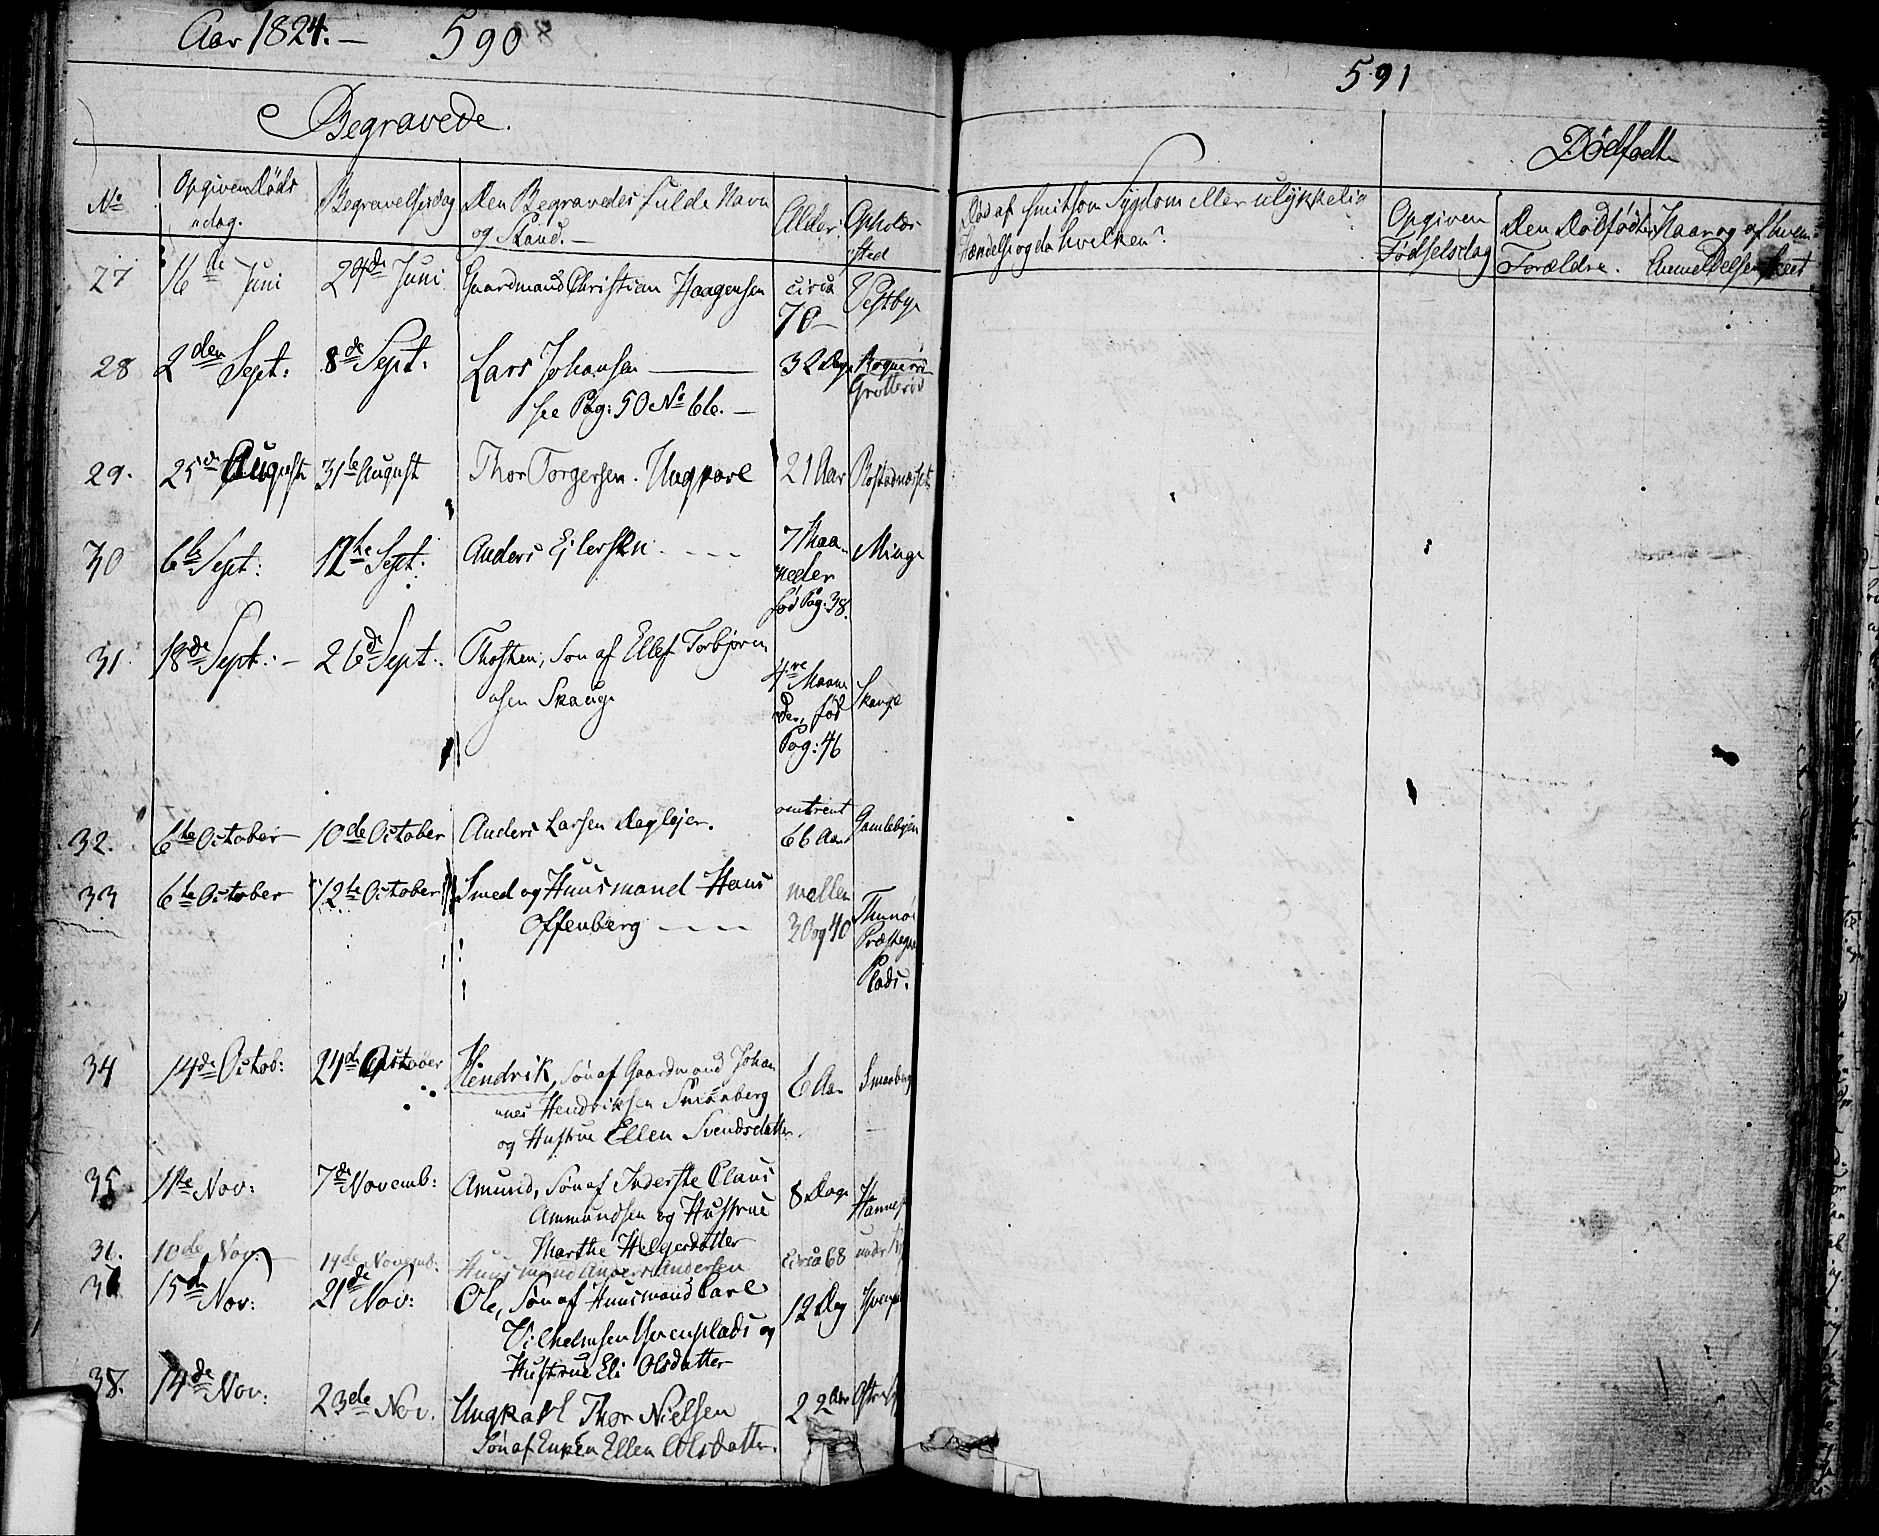 Aar 1824. — 590
Begravede.
No
Opgiven Döds
dag.
Begravelsesdag
Den Begravedes fulde Navn
og Stand. —
Alder.
Opholds
sted
27 16de Juni 24de Juni Gaardmand Christian Haagensen circa 70 — Vestbye
28 2den Sept: 8de Sept: Lars Johansen 32 Dage
Grotteröd
see Pag: 50 No 66. —
29. 25de August 31te August Thor Torgersen. Ungkarl 21 Aar
30 6te Sept: 12te Sept: Anders Ejlersen - - - 7 Maa
neder
föd Pag: 38.
Minge
31. 18de Sept: — 26de Sept: Thosten, Sön af Ellef Torbjörn
sen Skauge
4re Maane
der, föd
Pag: 46
Skauge
32. 6te October — 10de October Anders Larsen Daglejer. omtrent
66 Aar
Gamlebyen
33 6te October 12te October Smed og Huusmand Hans
Offenberg - - - -
mellem
30 og 40
Thunöe
Præstegrs
Plads.
34 14de Octob: 24de October Hendrik, Sön af Gaardmand Johan
nes Hendriksen Smaaberg
og Hustrue Ellen Svendsdatter.
6 Aar Smaaberg
35 1ste Nov: 7de Novemb: Amund, Sön af Inderste Claus
Ammundsen og Hustrue
Marthe Helgesdatter
8 Dage
36. 10de Nov: — 14de Novemb: Huusmand Anders Andersen circa 68
37 15de Nov: 21de Nov: Ole, Sön af Huusmand Carl
Vilhelmsen Hvenplads og
Hustrue Eli Olsdatter
12 Dag
38. 14de Nov: 23de Nov. Ungkarl Thor Nielsen
Sön af Enken Ellen Olsdatter.
22 Aar
591
Död af smitsom Sygdom eller ulykkelig
Hændelse og da hvilken?
Dödfödte
Opgiven
Födselsdag
Den Dödfödtes
Forældre.
Naar og af hvem
Anmeldelsen skeet